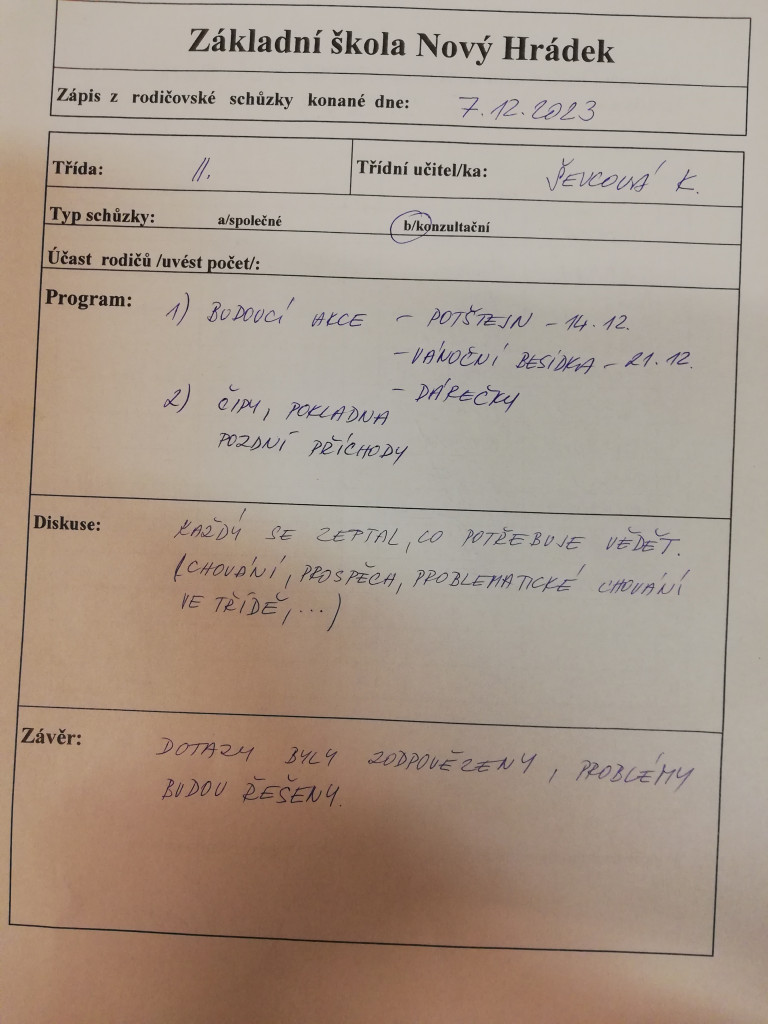 Základní škola Nový Hrádek
Zápis z rodičovské schůzky konané dne: 7.12.2023
Třída: II. Třídní učitel/ka: ŠEVCOVÁ K.
Typ schůzky: a/společné b/konzultační
Účast rodičů /uvést počet/:
Program: 1) BUDOUCÍ AKCE - POTŠTEJN - 14.12.
- VÁNOČNÍ BESÍDKA - 21.12.
- DÁREČKY
2) ČIPY, POKLADNA
POZDNÍ PŘÍCHODY
Diskuse: KAŽDÝ SE ZEPTAL, CO POTŘEBUJE VĚDĚT.
(CHOVÁNÍ, PROSPĚCH, PROBLEMATICKÉ CHOVÁNÍ
VE TŘÍDĚ, ...)
Závěr: DOTAZY BYLY ZODPOVĚZENY, PROBLÉMY
BUDOU ŘEŠENY.